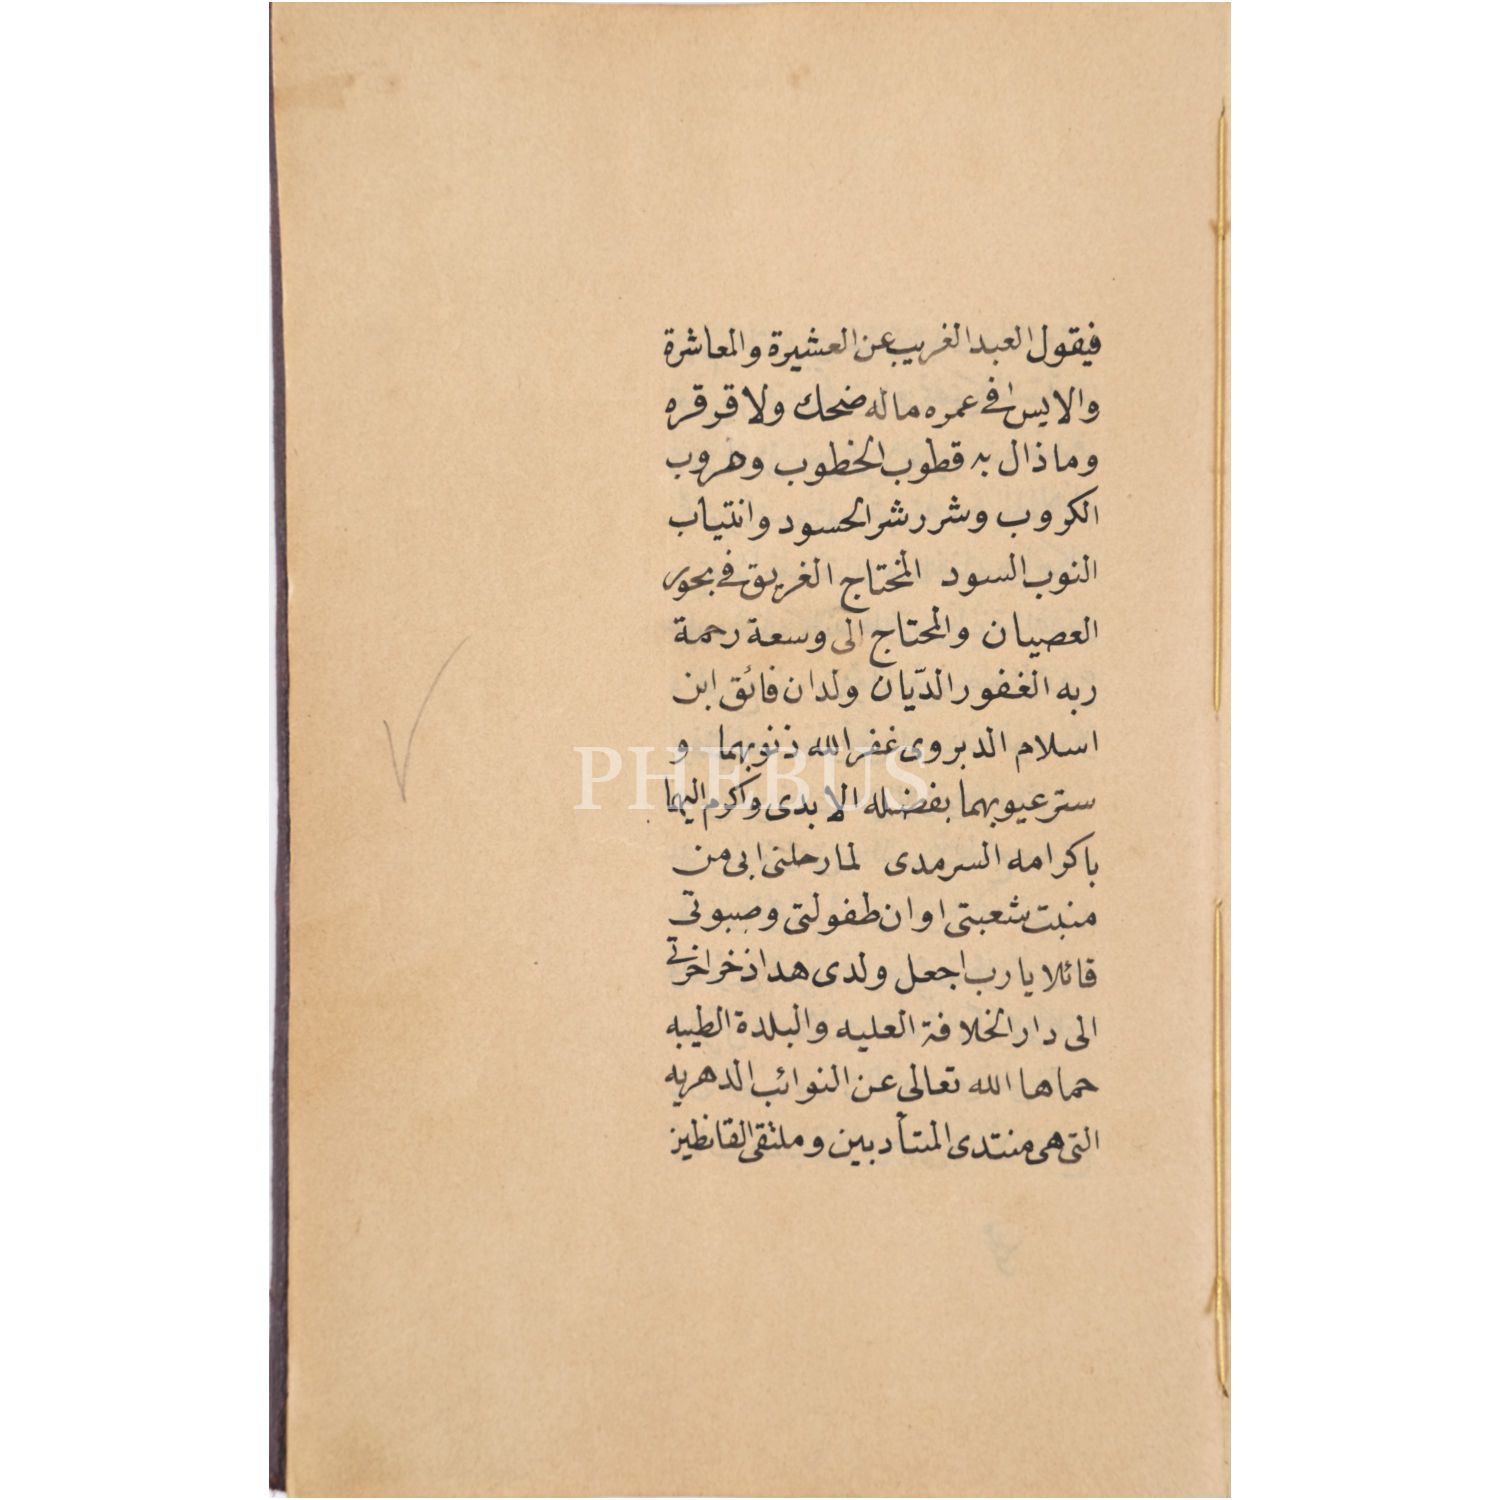 فيقول العبد الغريب عن العشيرة والمعاشرة
والايس في عمره ماله ضحك ولا قرقره
وماذال به قطوب الخطوب وهروب
الكروب وشرر شر الحسود وانتياب
النوب السود المختاج الغريق في بحور
العصيان والمحتاج الى وسعة رحمة
ربه الغفور الديّان ولدان فائق ابن
اسلام الدبروى غفر الله ذنوبهما و
ستر عيوبهما بفضله الابدى واكرم اليهما
باكرامه السرمدى لما رحلنى ابى من
منبت شعبتى اوان طفولتى وصبوتى
قائلا يا رب اجعل ولدى هذا ذخر اخرتى
الى دار الخلافة العليه والبلدة الطيبه
حماها الله تعالى عن النوائب الدهريه
التى هى منتدى المتأدبين وملتقى
PHEBUS